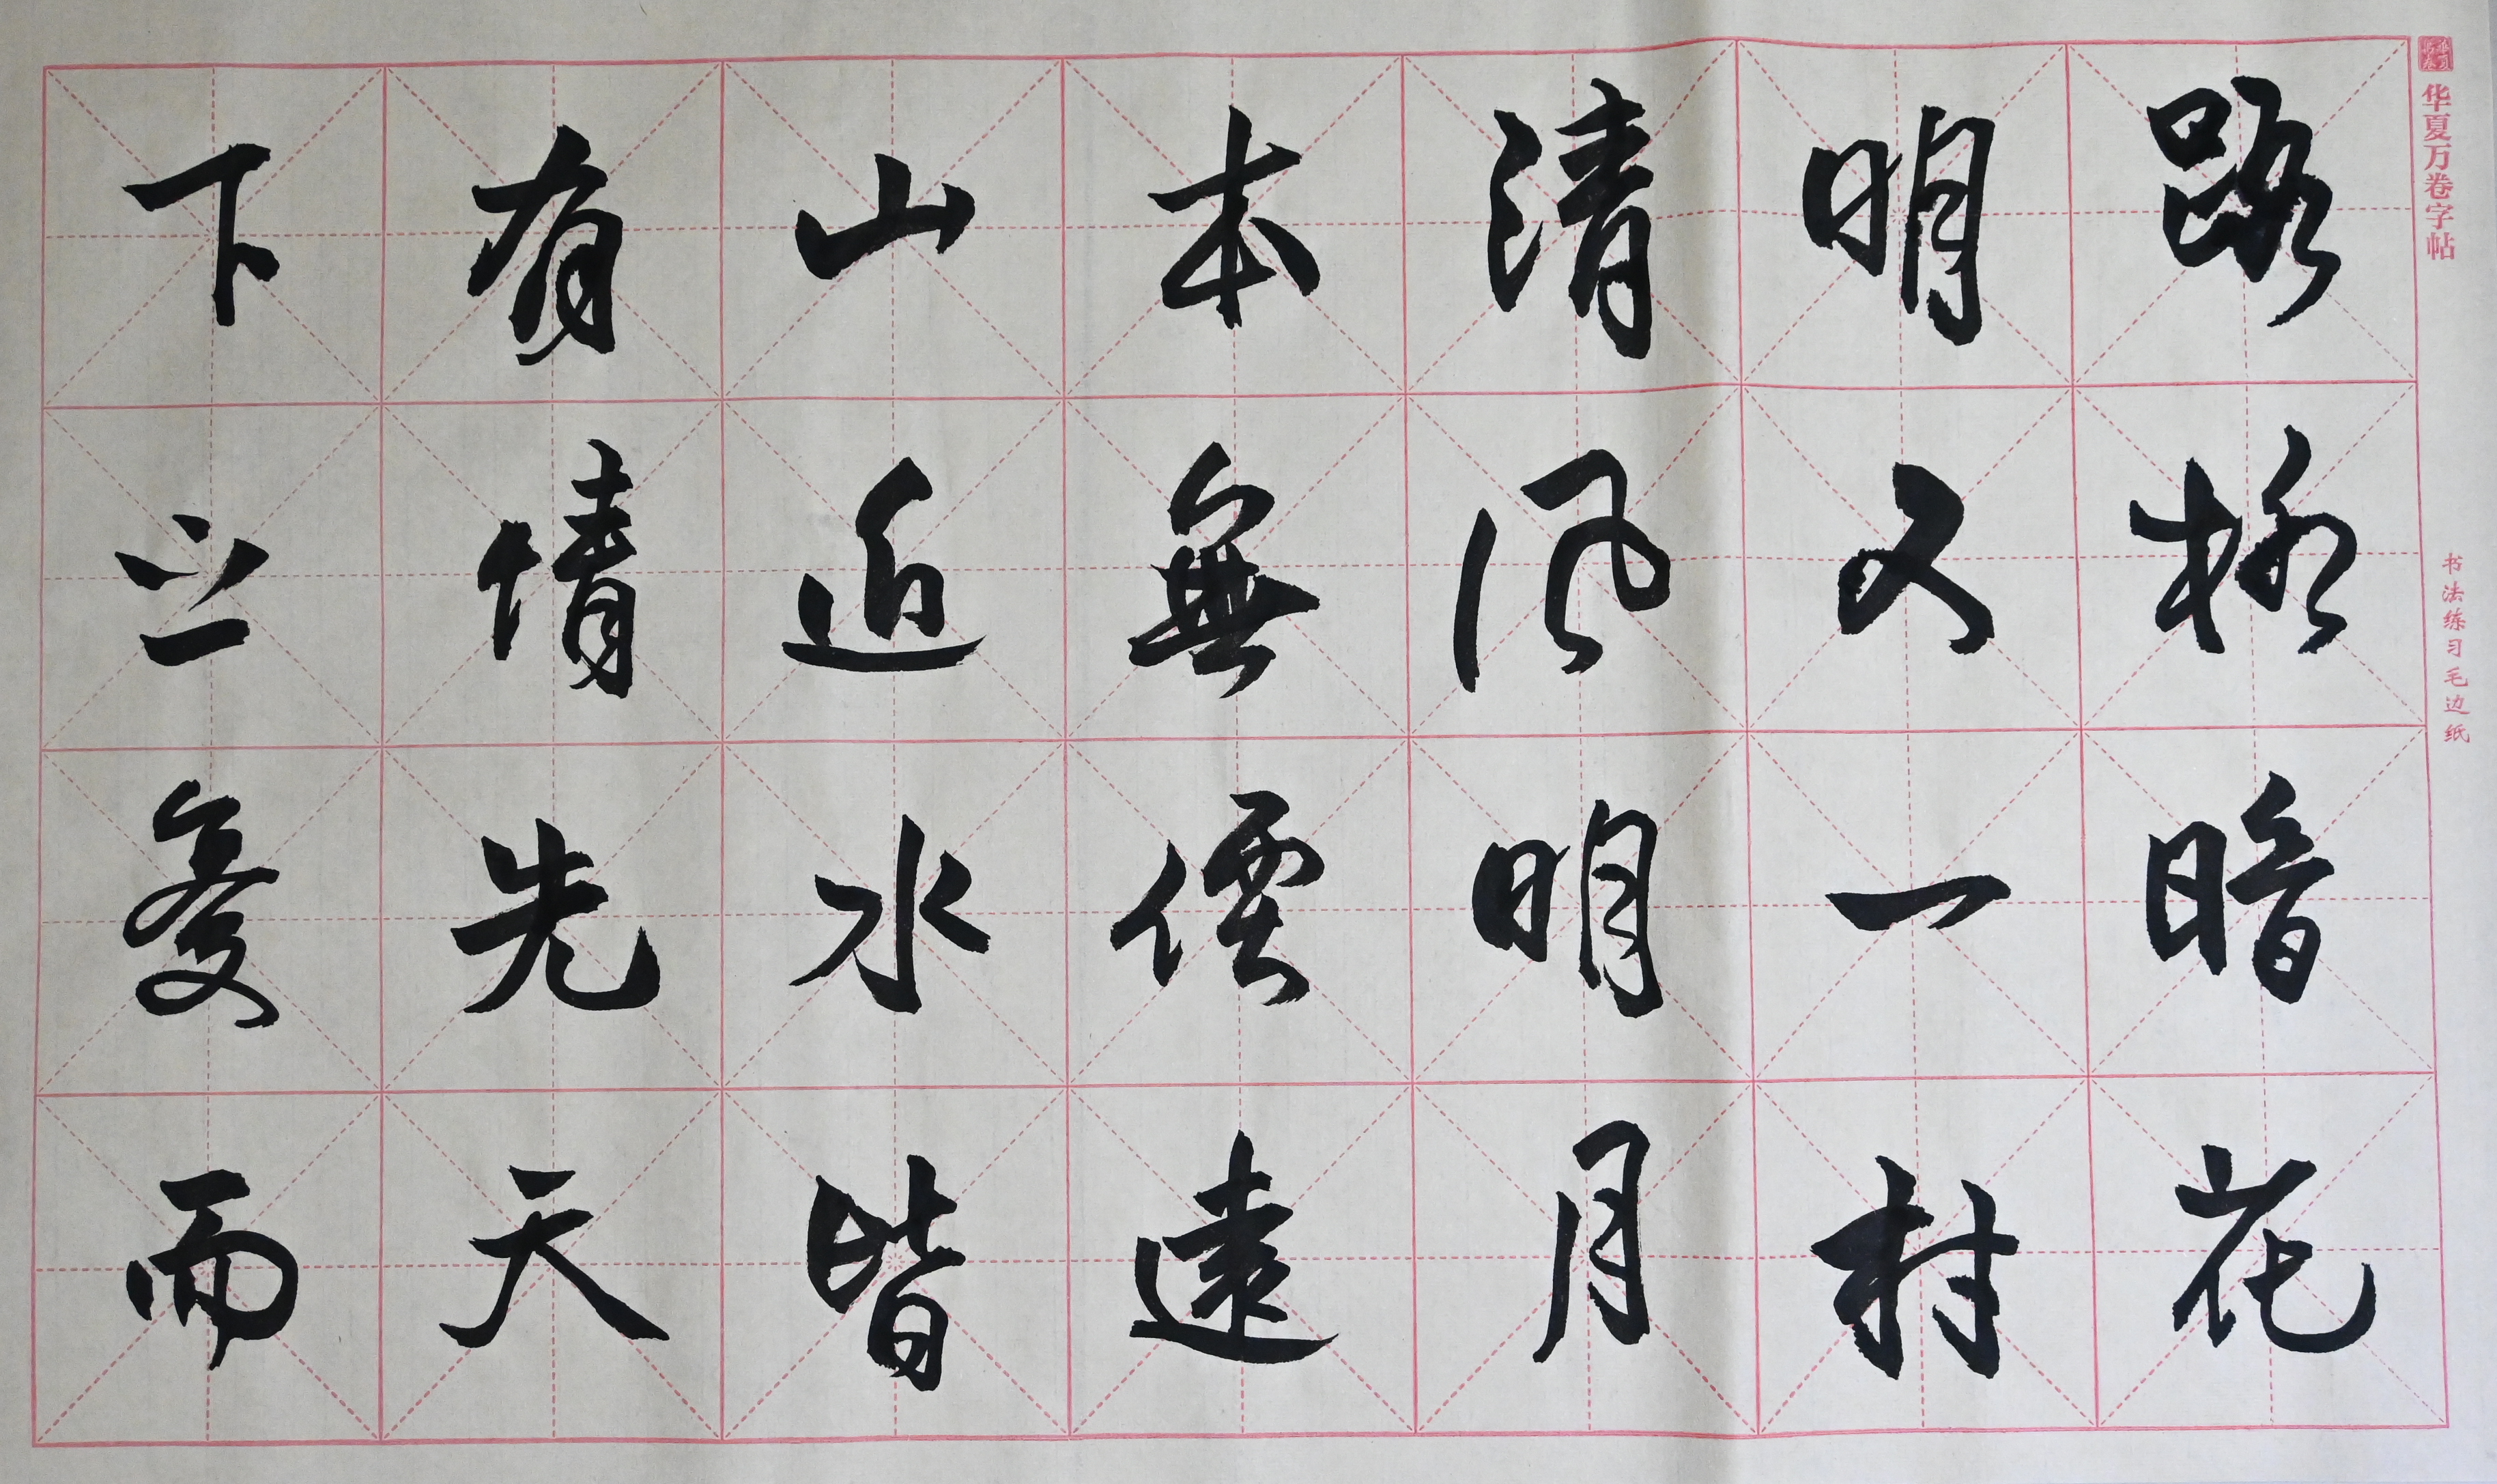 华夏万卷
华夏万卷字帖
书法练习毛边纸
路柳暗花
明又一村
清风明月
本無價遠
山近水皆
有情先天
下之憂而